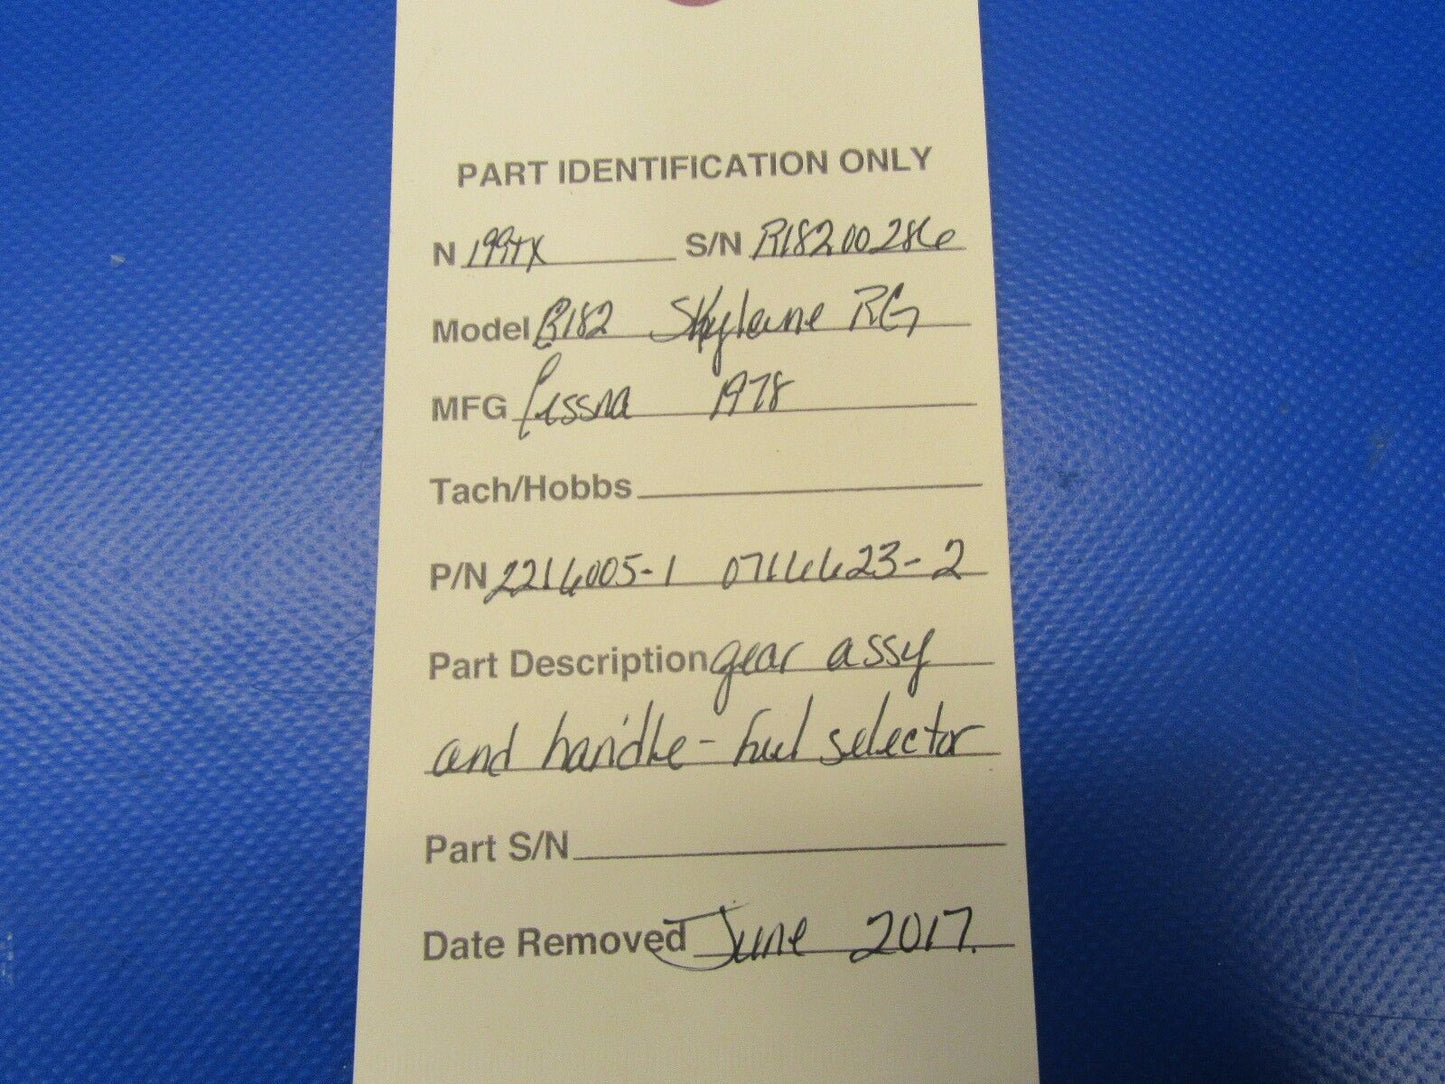 PART IDENTIFICATION ONLY
N 1994X S/N R18200286
Model R182 Skylane RG
MFG Cessna 1978
Tach/Hobbs
P/N 2216005-1 0716623-2
Part Description gear assy
and handle - fuel selector
Part S/N
Date Removed June 2017.